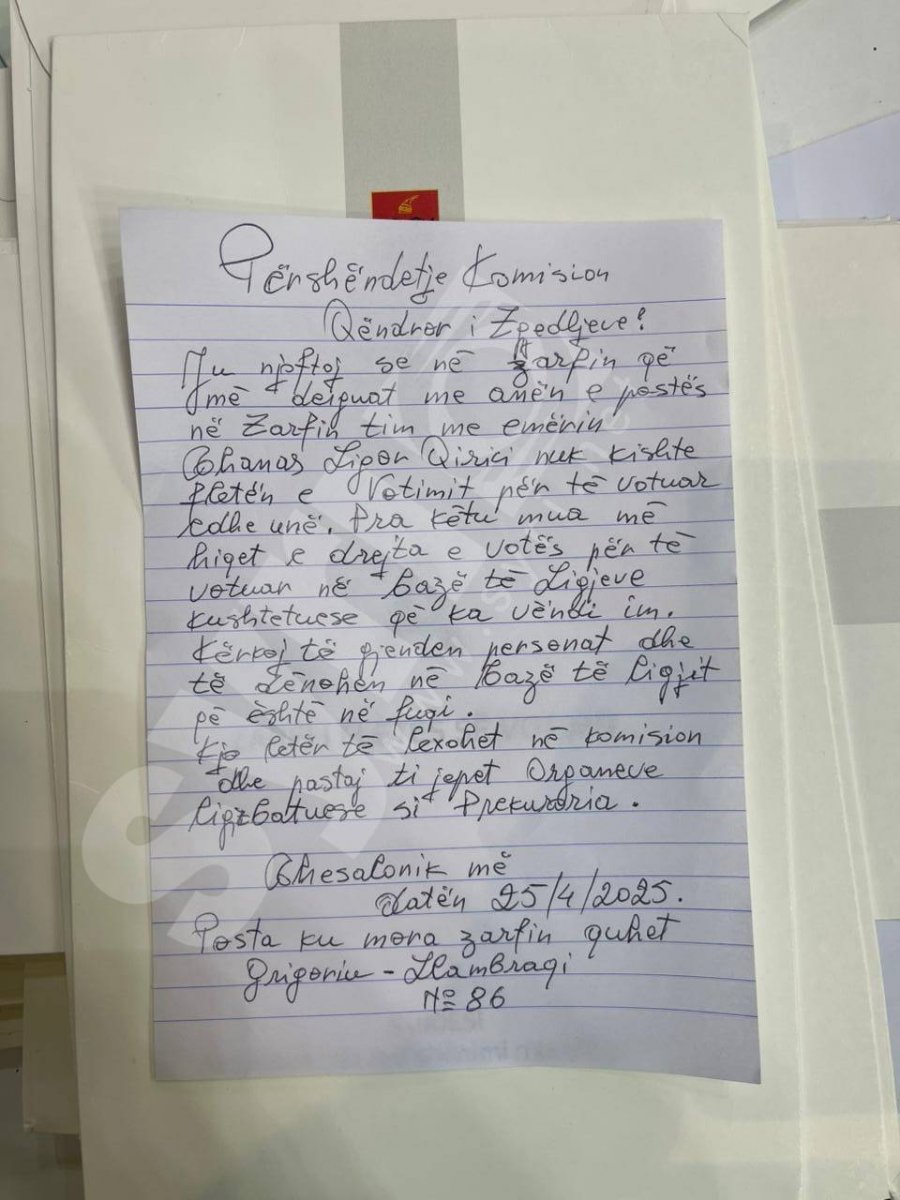 Përshëndetje Komision
Qëndror i Zgedhjeve!
Ju njoftoj se në zarfin që
më dërguat me anën e postës
në Zarfin tim me emërin
Thanas Ligor Qirici nuk kishte
fletën e Votimit për të votuar
edhe unë. Pra këtu mua më
hiqet e drejta e votës për të
votuar në bazë të Ligjeve
kushtetuese që ka vëndi im.
Kërkoj të gjenden personat dhe
të dënohen në bazë të ligjit
që është në fuqi.
Kjo letër të lexohet në komision
dhe pastaj ti jepet Organeve
ligjzbatuese si Prokuroria.
Thesalonik më
datën 25/4/2025.
Posta ku mora zarfin quhet
Grigoriu - Lambraqi
№ 86